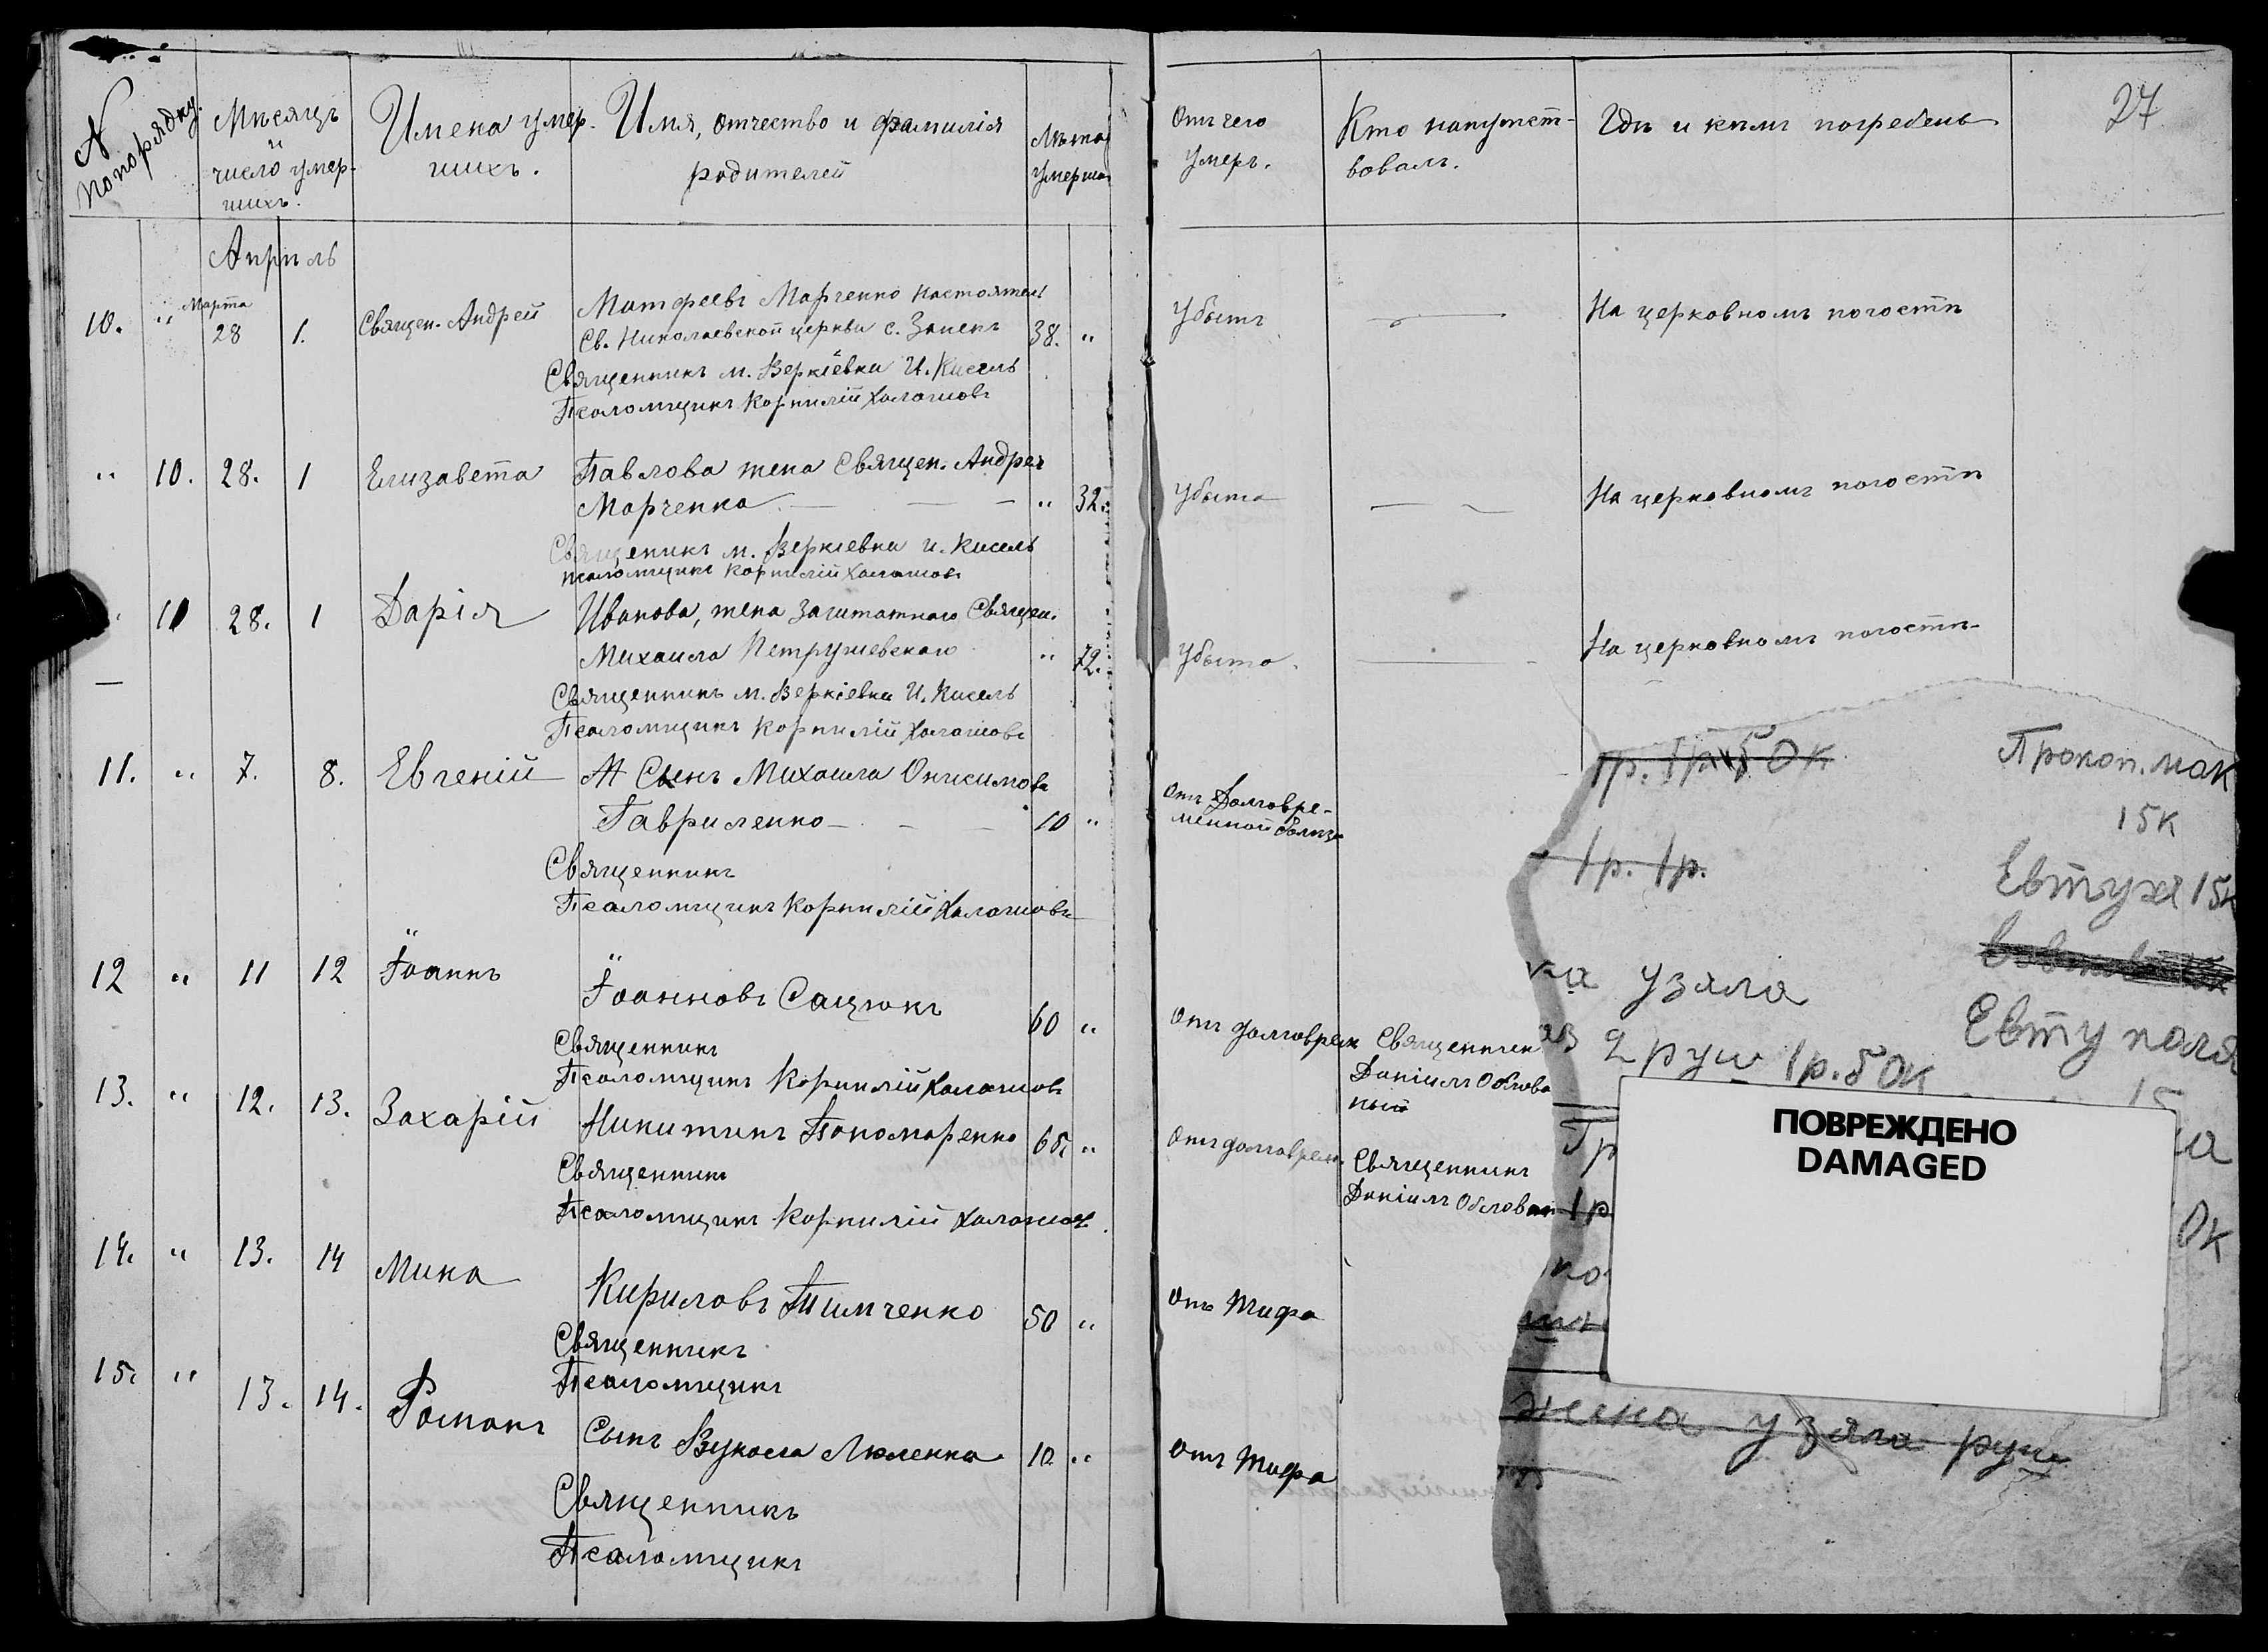 N
по порядку.
Мѣсяцъ
и
число умер-
шихъ.
Имена умер-
шихъ.
Имя, отчество и фамилія
родителей
Лѣта
умерша
Отъ чего
умеръ.
Кто напутст-
вовалъ.
Гдѣ и кѣмъ погребенъ
27
Апрѣль
10. " Марта 28 1. Священ. Андрей
Матфеевъ Марченко настоятель
Св. Николаевской церкви с. 38. "
Священникъ м. Веркіевки И. Кисель
Псаломщикъ Корнилій Халошовъ
Убитъ
На церковномъ погостѣ
" 10. 28. 1 Елизавета Павлова жена Священ. Андрея
Марченка. — — — " 32.
Священикъ м. Веркіевки И. Кисель
псаломщикъ Корнилій Халошовъ
Убита
На церковномъ погостѣ
" 11 28. 1 Дарія Иванова, жена Заштатнаго Священ.
Михаила Петрушевскаго " 72.
Священникъ м. Веркіевки И. Кисель
Псаломщикъ Корнилій Халошовъ
Убита.
На церковномъ погостѣ
11. " 7. 8. Евгеній Сынъ Михаила Онисимова
Гавриленко — — — 10 "
Священникъ
Псаломщикъ Корнилій Халошовъ
Отъ Долговре-
менной болѣз
12 " 11 12 Іоаннъ
Іоанновъ Сацюкъ 60 "
Священникъ
Псаломщикъ Корнилій Халошовъ
Отъ долговрем Священник
Даніилъ Облова
ный
13. " 12. 13. Захарій Никитинъ Пономаренко 65. "
Священник
Псаломщикъ Корнилій Халошов.
Отъ долговрем. Священникъ
Даніилъ Облован
14. " 13. 14 Мина
Кириловъ Тимченко 50 "
Священникъ
Псаломщикъ
Отъ Тифа
15. " 13. 14. Романъ
Сынъ Вукола Люленка 10. "
Священникъ
Псаломщикъ
Отъ Тифа
1р. 1р. 50к
Прокоп. мак
15к
1р. 1р.
Евтухъ 15к
ка узяла
2 руш 1р. 50к
Евту пала
15
Гр
1р
ка
0к
жина узяла руш
ПОВРЕЖДЕНО
DAMAGED